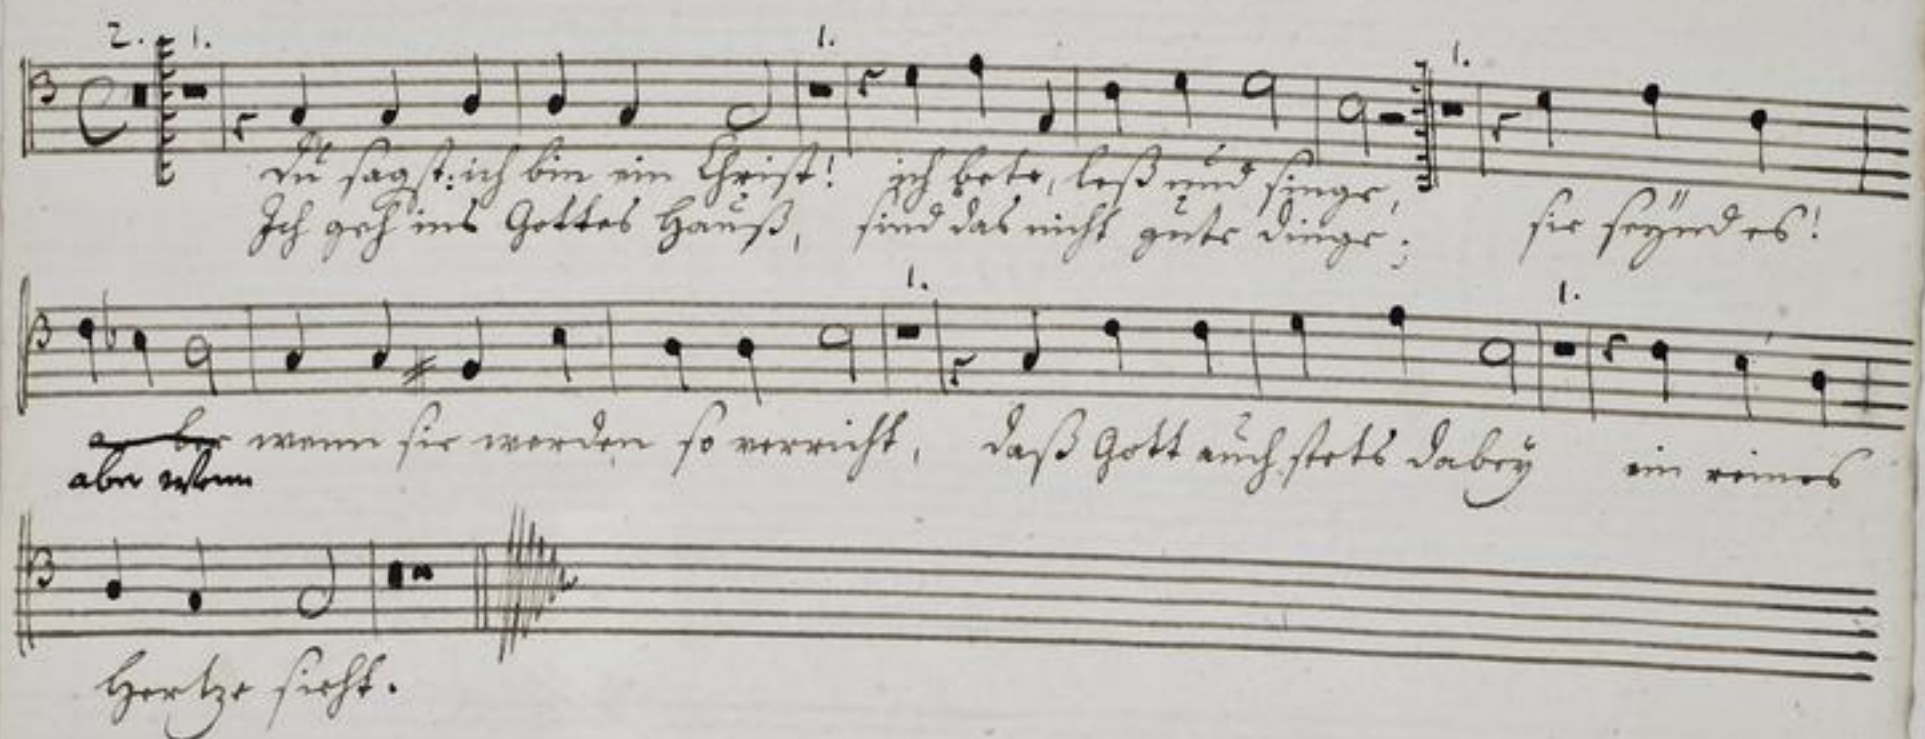 2. 1. 1. 1.
Du sagst: ich bin ein Christ! ich bete, leß und singe,
Ich geh ins Gottes Hauß, sind das nicht gute dinge; sie seynd es!
1. 1.
aber wenn sie werden so verricht, daß Gott auch stets dabey ein reines
aber wenn
Hertze sieht.